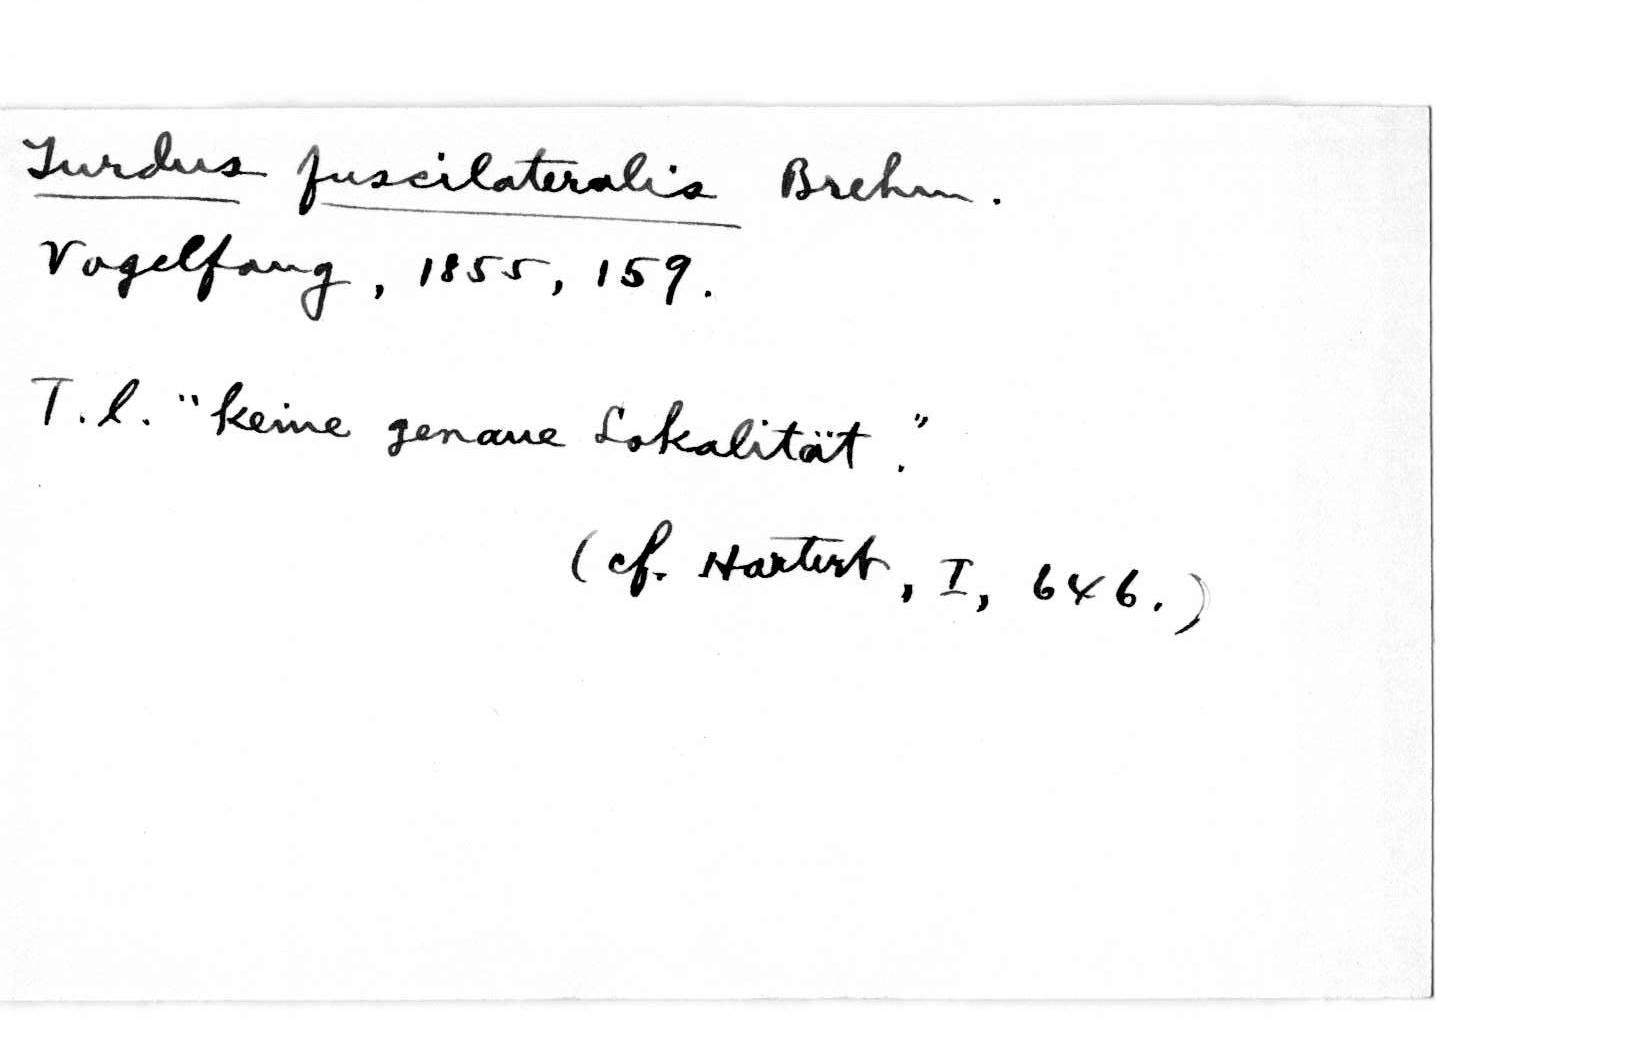 Turdus fuscilateralis Brehm.
Vogelfang, 1855, 159.
T.l. "keine genaue Lokalität."
(cf. Hartert, I, 646.)